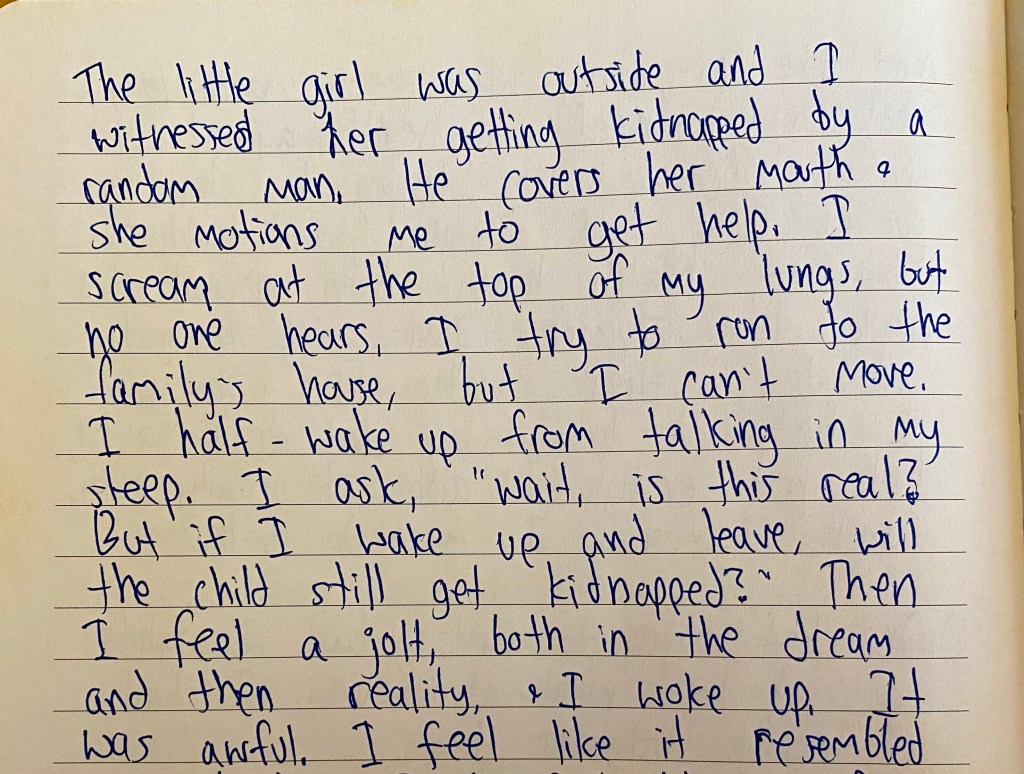 The little girl was outside and I
witnessed her getting kidnapped by a
random man. He covers her mouth &
she motions me to get help. I
scream at the top of my lungs, but
no one hears. I try to run to the
family's house, but I can't move.
I half-wake up from talking in my
sleep. I ask, "wait, is this real?
But if I wake up and leave, will
the child still get kidnapped?" Then
I feel a jolt, both in the dream
and then reality, & I woke up. It
was awful. I feel like it resembled